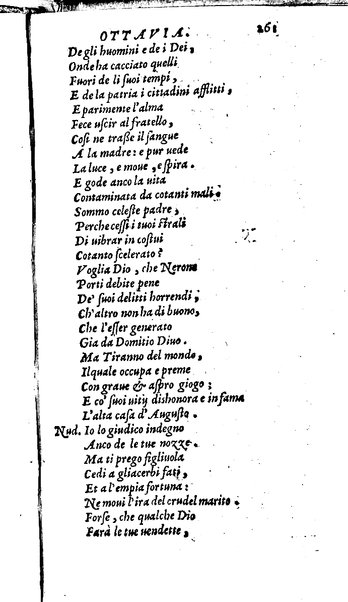 OTTAVIA. 261
De gli huomini e de i Dei,
Onde ha cacciato quelli
Fuori de li suoi tempi,
E de la patria i cittadini afflitti,
E parimente l'alma
Fece uscir al fratello,
Cosi ne trasse il sangue
A la madre: e pur uede
La luce, e moue, e spira.
E gode anco la uita
Contaminata da cotanti mali.
Sommo celeste padre,
Perche cessi i tuoi strali
Di uibrar in costui
Cotanto scelerato?
Voglia Dio, che Nerone
Porti debite pene
De' suoi delitti horrendi,
Ch'altro non ha di buono,
Che l'esser generato
Gia da Domitio Diuo.
Ma Tiranno del mondo,
Ilquale occupa e preme
Con graue & aspro giogo:
E co' suoi uitij dishonora e infama
L'alta casa d'Augusto.
Nud. Io lo giudico indegno
Anco de le tue nozze.
Ma ti prego figliuola
Cedi a gliacerbi fati,
Et a l'empia fortuna:
Ne moui l'ira del crudel marito.
Forse, che qualche Dio
Farà le tue uendette,